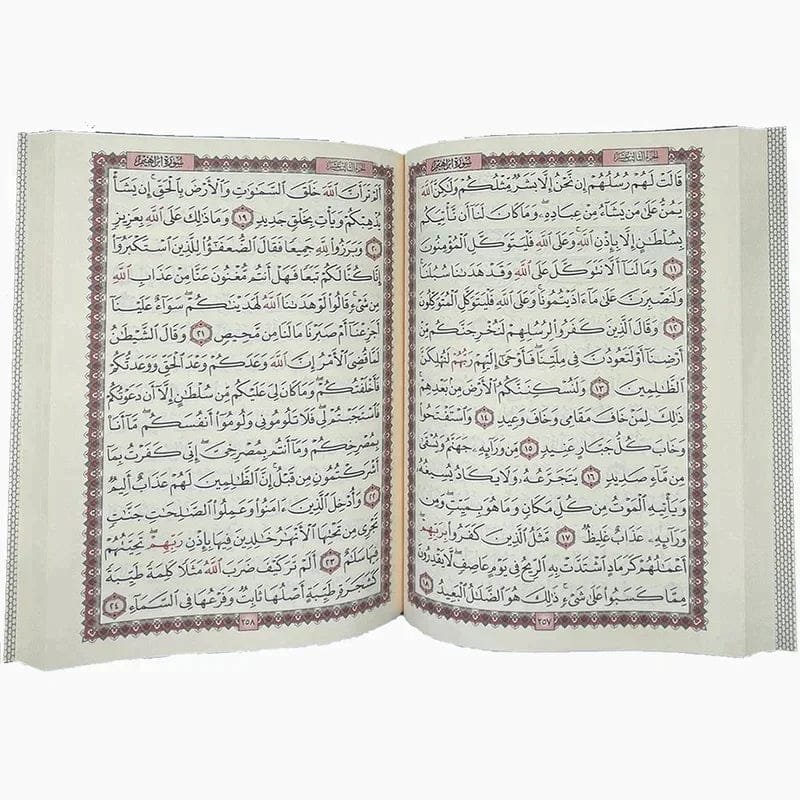 الجزء الثالث عشر
سورة إبراهيم
قَالَتْ لَهُمْ رُسُلُهُمْ إِن نَّحْنُ إِلَّا بَشَرٌ مِّثْلُكُمْ وَلَٰكِنَّ ٱللَّهَ
يَمُنُّ عَلَىٰ مَن يَشَآءُ مِنْ عِبَادِهِۦۖ وَمَا كَانَ لَنَآ أَن نَّأْتِيَكُم
بِسُلْطَٰنٍ إِلَّا بِإِذْنِ ٱللَّهِۚ وَعَلَى ٱللَّهِ فَلْيَتَوَكَّلِ ٱلْمُؤْمِنُونَ
١١ وَمَا لَنَآ أَلَّا نَتَوَكَّلَ عَلَى ٱللَّهِ وَقَدْ هَدَىٰنَا سُبُلَنَاۚ
وَلَنَصْبِرَنَّ عَلَىٰ مَآ ءَاذَيْتُمُونَاۚ وَعَلَى ٱللَّهِ فَلْيَتَوَكَّلِ ٱلْمُتَوَكِّلُونَ
١٢ وَقَالَ ٱلَّذِينَ كَفَرُوا۟ لِرُسُلِهِمْ لَنُخْرِجَنَّكُم مِّنْ
أَرْضِنَآ أَوْ لَتَعُودُنَّ فِى مِلَّتِنَاۖ فَأَوْحَىٰٓ إِلَيْهِمْ رَبُّهُمْ لَنُهْلِكَنَّ
ٱلظَّٰلِمِينَ ١٣ وَلَنُسْكِنَنَّكُمُ ٱلْأَرْضَ مِنۢ بَعْدِهِمْۚ
ذَٰلِكَ لِمَنْ خَافَ مَقَامِى وَخَافَ وَعِيدِ ١٤ وَٱسْتَفْتَحُوا۟
وَخَابَ كُلُّ جَبَّارٍ عَنِيدٍ ١٥ مِّن وَرَآئِهِۦ جَهَنَّمُ وَيُسْقَىٰ
مِن مَّآءٍ صَدِيدٍ ١٦ يَتَجَرَّعُهُۥ وَلَا يَكَادُ يُسِيغُهُۥ
وَيَأْتِيهِ ٱلْمَوْتُ مِن كُلِّ مَكَانٍ وَمَا هُوَ بِمَيِّتٍۖ وَمِن
وَرَآئِهِۦ عَذَابٌ غَلِيظٌ ١٧ مَّثَلُ ٱلَّذِينَ كَفَرُوا۟ بِرَبِّهِمْۖ
أَعْمَٰلُهُمْ كَرَمَادٍ ٱشْتَدَّتْ بِهِ ٱلرِّيحُ فِى يَوْمٍ عَاصِفٍۖ لَّا يَقْدِرُونَ
مِمَّا كَسَبُوا۟ عَلَىٰ شَىْءٍۚ ذَٰلِكَ هُوَ ٱلضَّلَٰلُ ٱلْبَعِيدُ ١٨
٢٥٧
الجزء الثالث عشر
سورة إبراهيم
أَلَمْ تَرَ أَنَّ ٱللَّهَ خَلَقَ ٱلسَّمَٰوَٰتِ وَٱلْأَرْضَ بِٱلْحَقِّۚ إِن يَشَأْ
يُذْهِبْكُمْ وَيَأْتِ بِخَلْقٍ جَدِيدٍ ١٩ وَمَا ذَٰلِكَ عَلَى ٱللَّهِ بِعَزِيزٍ
٢٠ وَبَرَزُوا۟ لِلَّهِ جَمِيعًا فَقَالَ ٱلضُّعَفَٰٓؤُا۟ لِلَّذِينَ ٱسْتَكْبَرُوٓا۟
إِنَّا كُنَّا لَكُمْ تَبَعًا فَهَلْ أَنتُم مُّغْنُونَ عَنَّا مِنْ عَذَابِ ٱللَّهِ
مِن شَىْءٍۚ قَالُوا۟ لَوْ هَدَىٰنَا ٱللَّهُ لَهَدَيْنَٰكُمْۖ سَوَآءٌ عَلَيْنَآ
أَجَزِعْنَآ أَمْ صَبَرْنَا مَا لَنَا مِن مَّحِيصٍ ٢١ وَقَالَ ٱلشَّيْطَٰنُ
لَمَّا قُضِىَ ٱلْأَمْرُ إِنَّ ٱللَّهَ وَعَدَكُمْ وَعْدَ ٱلْحَقِّ وَوَعَدتُّكُمْ
فَأَخْلَفْتُكُمْۖ وَمَا كَانَ لِىَ عَلَيْكُم مِّن سُلْطَٰنٍ إِلَّآ أَن دَعَوْتُكُمْ
فَٱسْتَجَبْتُمْ لِىۖ فَلَا تَلُومُونِى وَلُومُوٓا۟ أَنفُسَكُمۖ مَّآ أَنَا۠
بِمُصْرِخِكُمْ وَمَآ أَنتُم بِمُصْرِخِىَّۖ إِنِّى كَفَرْتُ بِمَآ
أَشْرَكْتُمُونِ مِن قَبْلُۗ إِنَّ ٱلظَّٰلِمِينَ لَهُمْ عَذَابٌ أَلِيمٌ
٢٢ وَأُدْخِلَ ٱلَّذِينَ ءَامَنُوا۟ وَعَمِلُوا۟ ٱلصَّٰلِحَٰتِ جَنَّٰتٍ
تَجْرِى مِن تَحْتِهَا ٱلْأَنْهَٰرُ خَٰلِدِينَ فِيهَا بِإِذْنِ رَبِّهِمْۖ تَحِيَّتُهُمْ
فِيهَا سَلَٰمٌ ٢٣ أَلَمْ تَرَ كَيْفَ ضَرَبَ ٱللَّهُ مَثَلًا كَلِمَةً طَيِّبَةً
كَشَجَرَةٍ طَيِّبَةٍ أَصْلُهَا ثَابِتٌ وَفَرْعُهَا فِى ٱلسَّمَآءِ ٢٤
٢٥٨